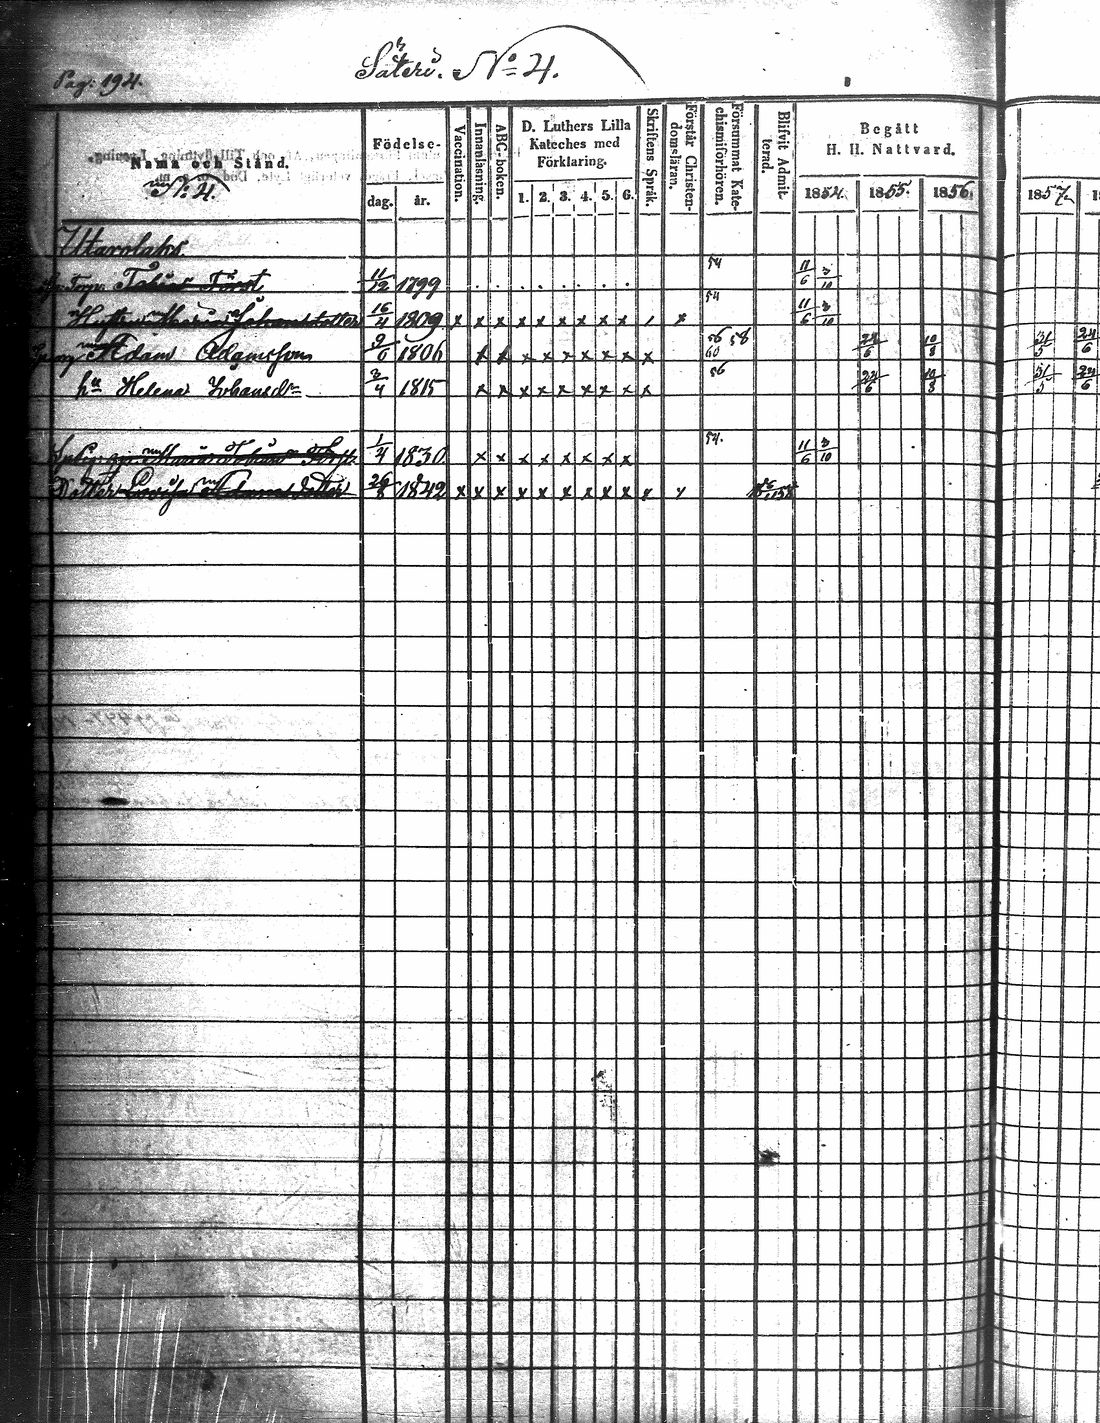 Pag: 194.
Säteri. No 4.
Namn och Stånd.
No 4.
Födelse-
dag.
år.
Vaccination.
Innanläsning.
ABC-boken.
D. Luthers Lilla
Kateches med
Förklaring.
1. 2. 3. 4. 5. 6.
Skriftens Språk.
Förstår Christen-
domsläran.
Försummat Kate-
chismiförhören.
Blifvit Admit-
terad.
Begått
H. H. Nattvard.
1854. 1855. 1856. 1857.
11/12 1799 . . . . . . . . . 54 11/6 3/10
Maria Johansdotter 16/4 1809 x x x x x x x x x / x 54 11/6 3/10
Adam Adamsson 9/6 1806 x x x x x x x x x 56 58 60 24/6 10/8 31/5 24/6
hu Helena Johansdr 3/4 1815 x x x x x x x x x 56 24/6 10/8 31/5 24/6
Maria 1/4 1830 x x x x x x x x 54. 11/6 3/10
Dotter Lovisa Adamsdotter 26/8 1842 x x x x x x x x x x x